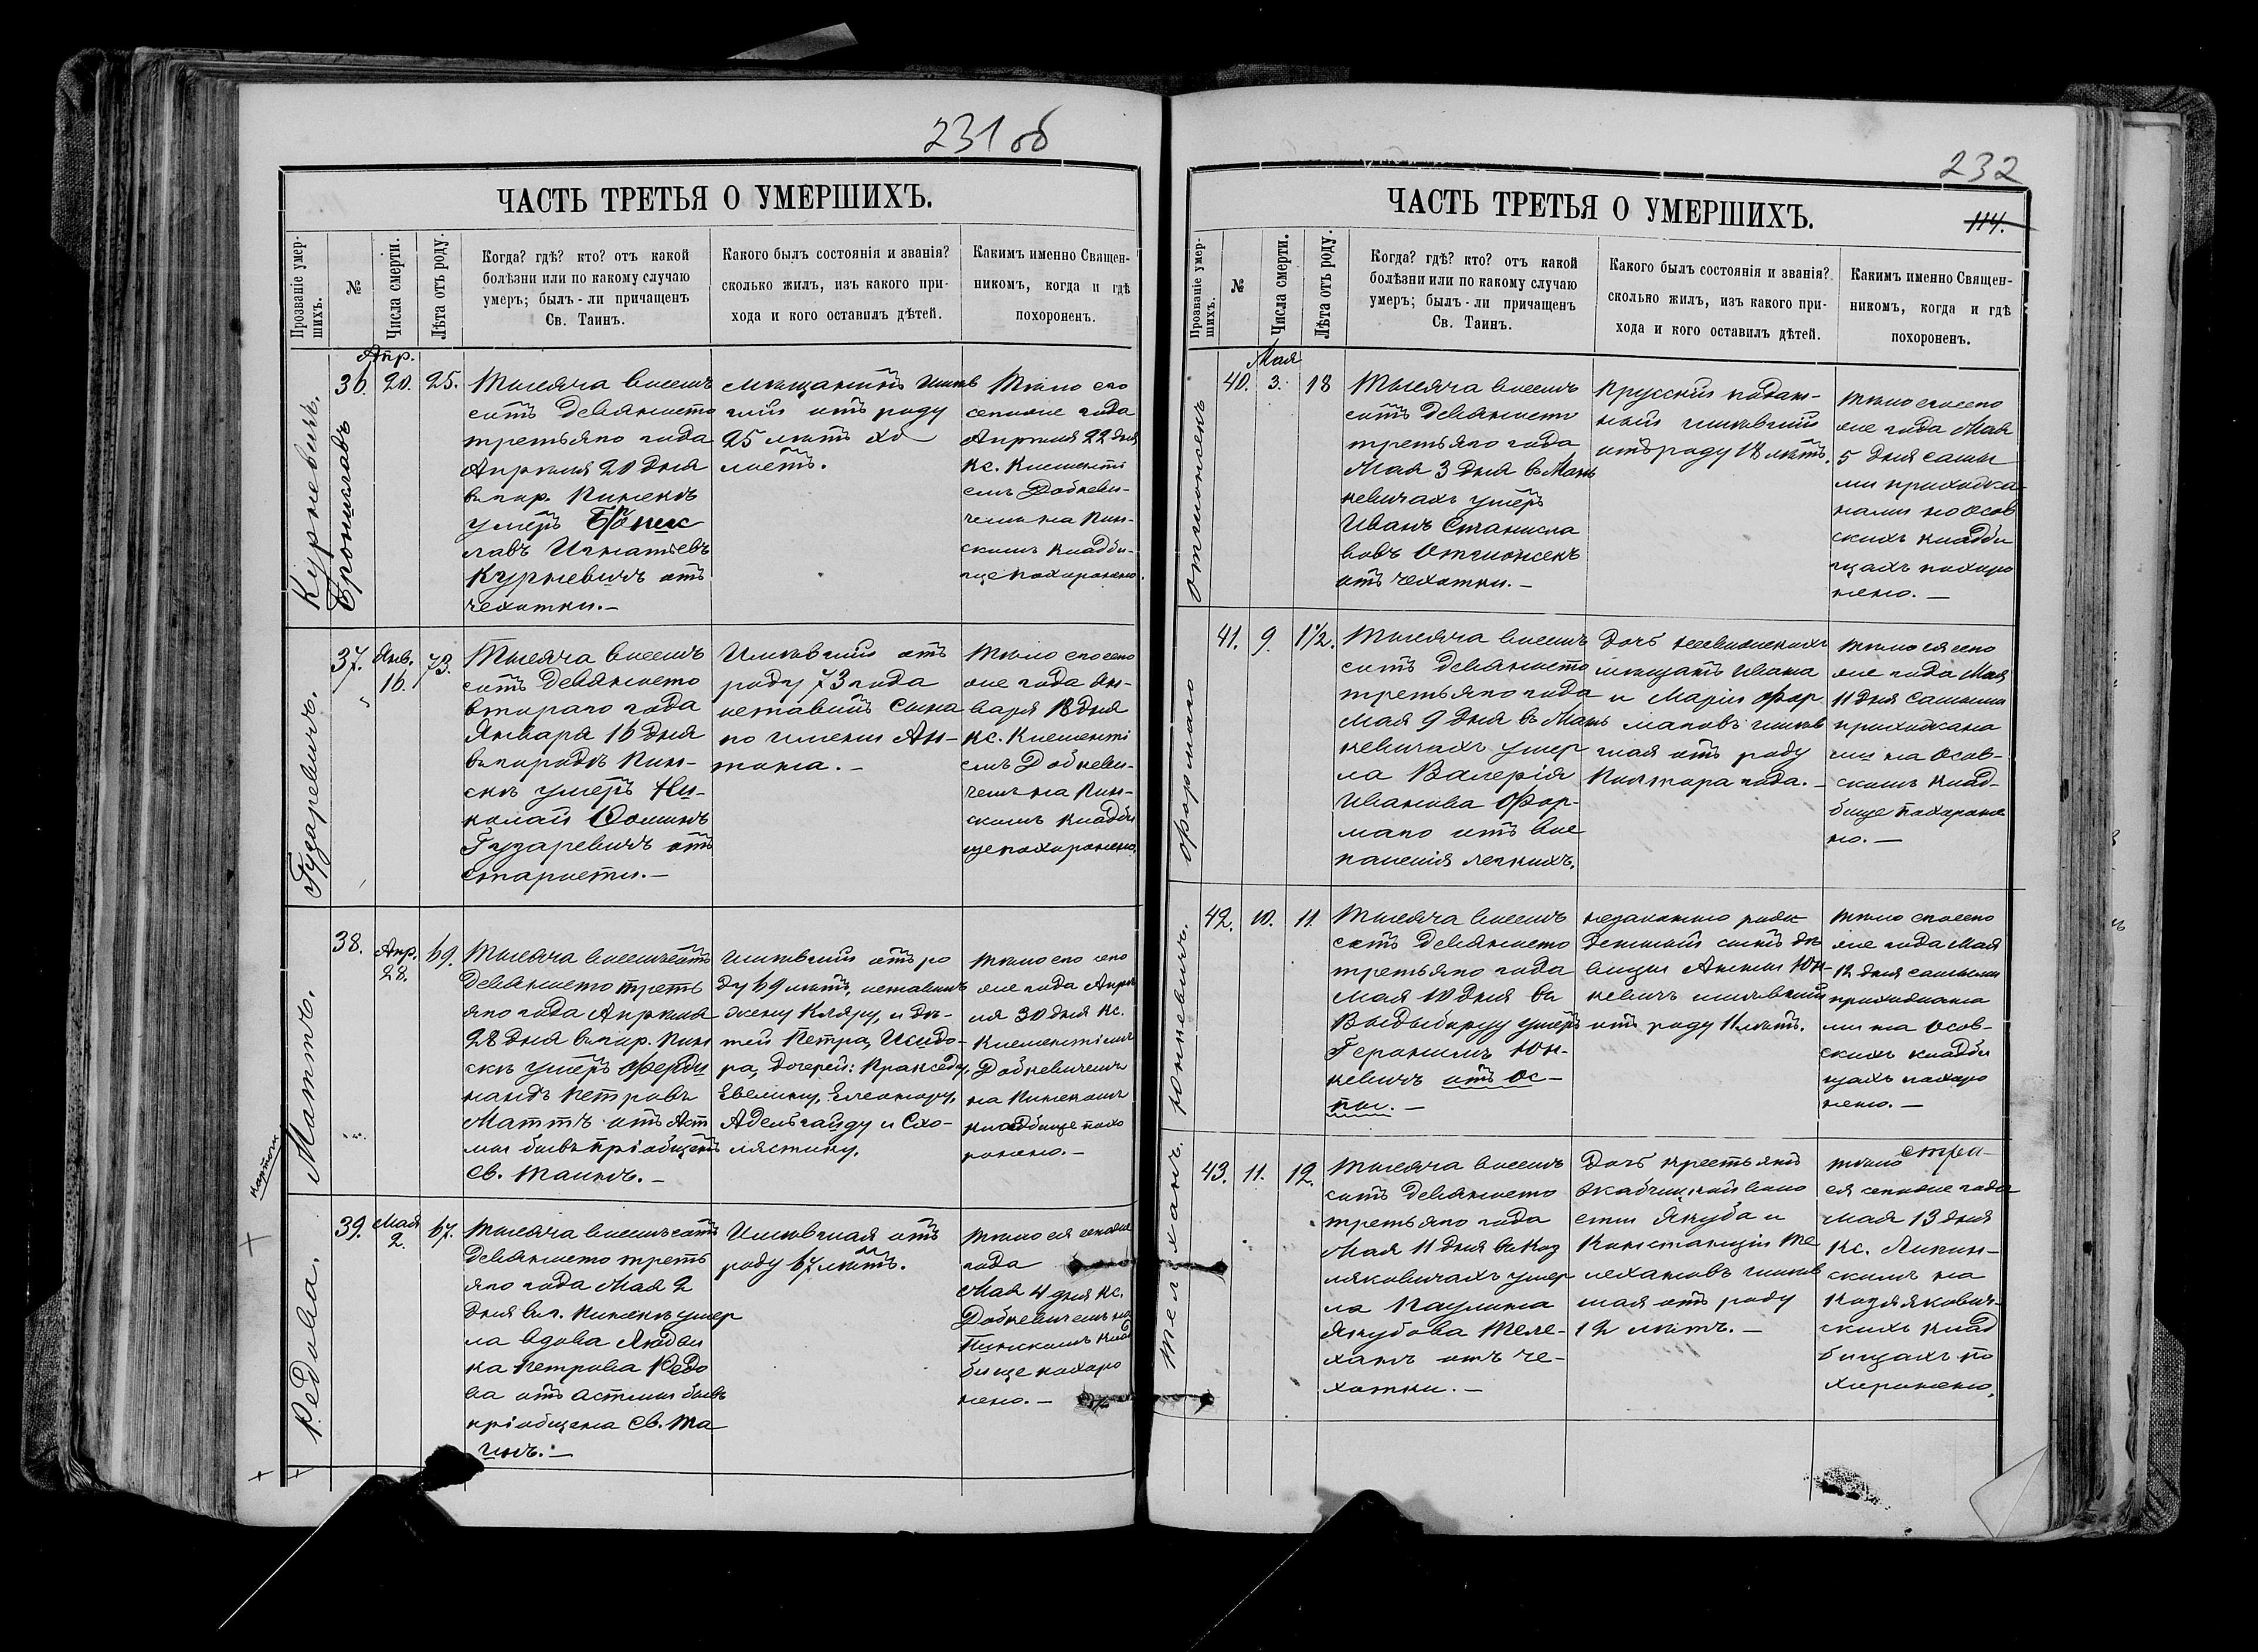 231 об
ЧАСТЬ ТРЕТЬЯ О УМЕРШИХЪ.
Прозваніе умер-
шихъ.
№
Числа смерти.
Лѣта отъ роду.
Когда? гдѣ? кто? отъ какой
болѣзни или по какому случаю
умеръ; былъ-ли причащенъ
Св. Таинъ.
Какого былъ состоянія и званія?
сколько жилъ, изъ какого при-
хода и кого оставилъ дѣтей.
Каким именно Священ-
никомъ, когда и гдѣ
похороненъ.
Курневичъ.
Брониславъ
36.
Апр.
20.
25.
Тысяча восемь
сотъ девяносто
третьяго года
Апрѣля 20 дня
въ гор. Пинскѣ
умеръ Брони
славъ Игнатьевъ
Курневичъ отъ
чехотки.—
мѣщанинъ
отъ роду
25 лѣтъ хо
лостъ.
Тѣло его
сегоже года
Апрѣля 22 дня
Кс. Клементі
емъ Добкеви-
чемъ на Пин-
скомъ кладби-
ще похоронено.
Гузаревичъ.
37.
Янв.
16.
73.
Тысяча восемь
сотъ девяносто
втораго года
Января 16 дня
въ городѣ Пин-
скѣ умеръ Ни-
колай Фоминъ
Гузаревичъ отъ
старости.—
Имѣвшій отъ
роду 73 года
оставивъ сына
по имени Ан-
тона.—
Тѣло его сего
же года Ян-
варя 18 дня
Кс. Клементі
емъ Добкеви-
чемъ на Пин-
скомъ кладби
ще похоронено.
Маттъ.
38.
Апр.
28.
69.
Тысяча восемьсотъ
девяносто треть
яго года Апрѣля
28 дня въ гор. Пин
скѣ умеръ Ферди
нандъ Петровъ
Маттъ отъ Аст
мы бывъ пріобщенъ
Св. Таинъ.—
Имѣвшій отъ ро
ду 69 лѣтъ, оставивъ
жену Кляру, и дѣ-
тей Петра, Исидо-
ра, дочерей: Пракседу,
Евелину, Елеонору,
Адельгайду и Схо-
лястику.
Тѣло его сего
же года Апрѣ
ля 30 дня Кс.
Клементіемъ
Добкевичемъ
на Пинскомъ
кладбище похо
ронено.—
Редова.
39.
Мая
2.
67.
Тысяча восемьсотъ
девяносто треть
яго года Мая 2
дня въ г. Пинскѣ умер
ла вдова Ядви
га Петрова Редо
ва отъ астмы бывъ
пріобщена Св. Та
инъ.—
Имѣвшая отъ
роду 67 лѣтъ.
Тѣло ея сегоже
года
Мая 4 дня Кс.
Добкевичемъ на
Пинскомъ клад
бище похоро
нено.—
232
114.
ЧАСТЬ ТРЕТЬЯ О УМЕРШИХЪ.
Прозваніе умер-
шихъ.
№
Числа смерти.
Лѣта отъ роду.
Когда? гдѣ? кто? отъ какой
болѣзни или по какому случаю
умеръ; былъ-ли причащенъ
Св. Таинъ.
Какого былъ состоянія и званія?
сколько жилъ, изъ какого при-
хода и кого оставилъ дѣтей.
Какимъ именно Священ-
никомъ, когда и гдѣ
похороненъ.
40.
Мая
3.
18
Тысяча восемь
сотъ девяносто
третьяго года
Мая 3 дня въ Мань
кевичахъ умеръ
Иванъ Станисла
вовъ
отъ чехотки.—
Прусскій поддан-
ный имѣвшій
отъ роду 18 лѣтъ.
Тѣло его сего
же года Мая
5 дня самы
ми прихожа-
нами на Осов
скихъ кладби
щахъ похоро
нено.—
Формаго
41.
9.
1½.
Тысяча восемь
сотъ девяносто
третьяго года
Мая 9 дня въ Мань
кевичахъ умер
ла Валерія
Иванова Фор-
маго отъ вос
паленія легкихъ.
Дочь
мѣщанъ Ивана
и Маріи Фор
маговъ имѣв
шая отъ роду
полтора года.—
Тѣло ея сего
же года Мая
11 дня самыми
прихожана
ми на Осов-
скомъ клад-
бище похороне
но.—
Юнкевичъ.
42.
10.
11.
Тысяча восемь
сотъ девяносто
третьяго года
Мая 10 дня въ
умеръ
Геронимъ Юн-
кевичъ отъ ос-
пы.—
незаконно рож
денный сынъ дѣ
вицы Анны Юн-
кевичъ имѣвшій
отъ роду 11 лѣтъ.
Тѣло его сего
же года Мая
12 дня самыми
прихожана
ми на Осов-
скихъ кладби
щахъ похоро
нено.—
Телеханъ.
43.
11.
12.
Тысяча восемь
сотъ девяносто
третьяго года
Мая 11 дня въ Коз
ляковичахъ умер
ла Паулина
Якубова Теле-
ханъ отъ че-
хотки.—
Дочь крестьянъ
воло
сти Якуба и
Констанціи Те
лехановъ имѣв
шая отъ роду
12 лѣтъ.—
Тѣло
ея сегоже года
Мая 13 дня
Кс. Липин-
скимъ на
Козлякович-
скихъ клад
бищахъ по
хоронено.